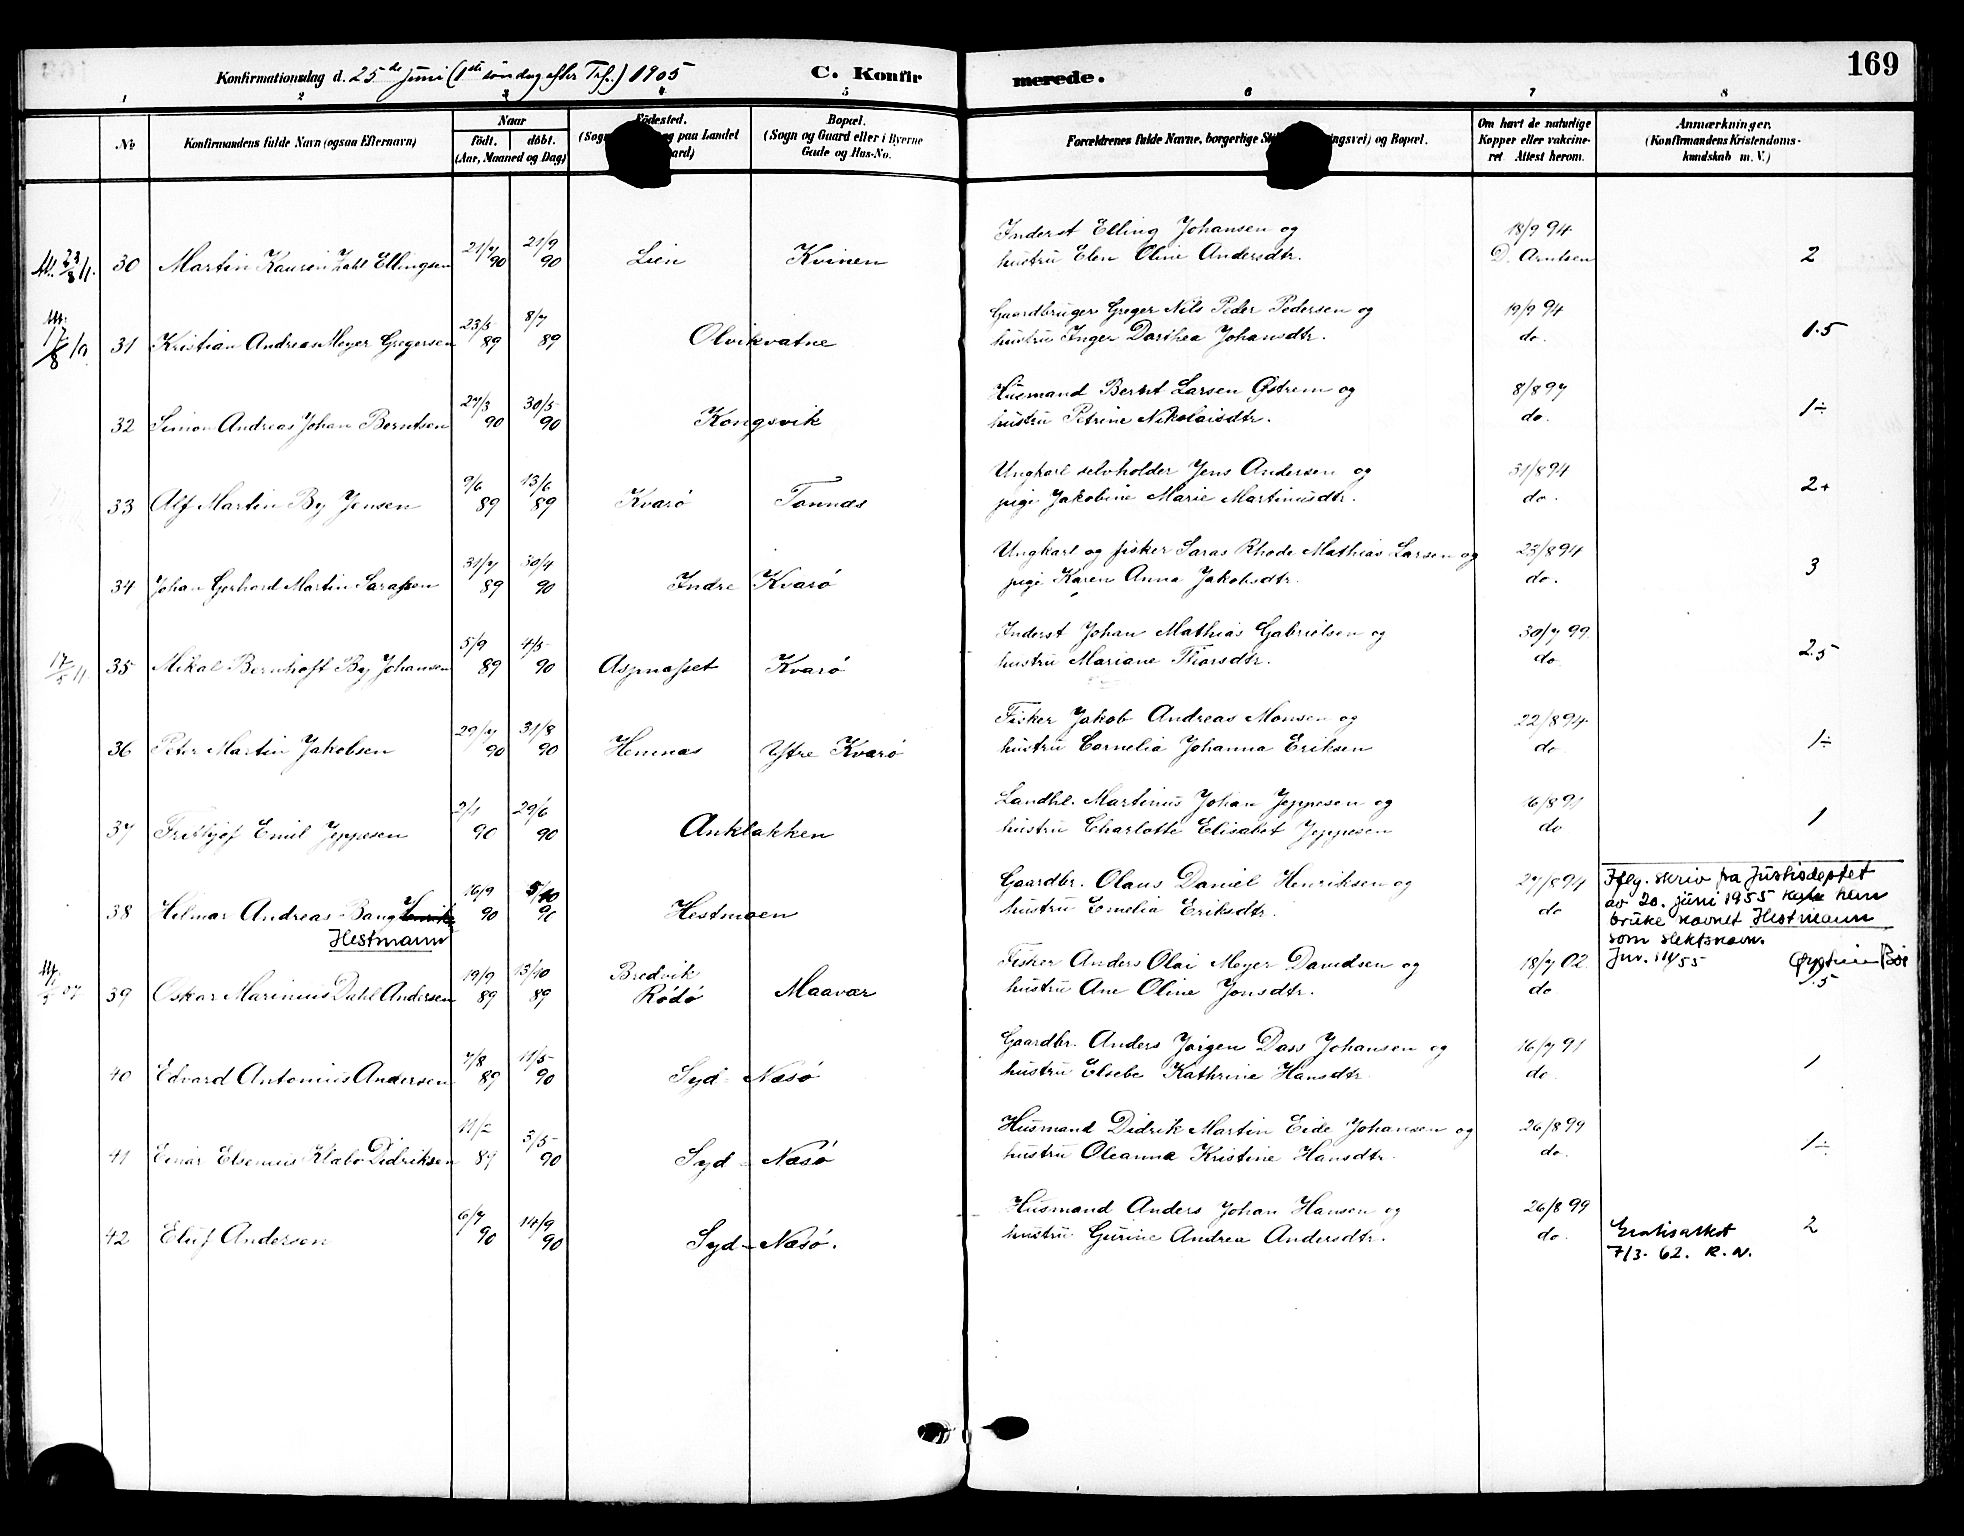 169
Konfirmationsdag d. 25de juni (1ste söndag efter Tref.) 1905 C. Konfirmerede.
1 2 3 4 5 6 7 8
No Konfirmandens fulde Navn (ogsaa Efternavn) Naar födt. döbt. (Aar, Maaned og Dag) Födested. (Sogn paa Landet Bopæl. (Sogn og Gaard eller i Byerne Gade og Hus-No. Forældrenes fulde Navne, borgerlige og Bopæl. Om havt de naturlige Kopper eller vakcineret Attest herom. Anmærkninger. (Konfirmandens Kristendomskundskab m. V.)
30 Martin Kausen Zahl Ellingsen 21/7 90 21/9 90 Lien Kvinen Inderst Elling Johansen og 18/9 94
hustru Elen Oline Andersdtr. D. Arntsen 2
17/8 10 31 Kristian Andreas Meyer Gregersen 23/5 89 8/7 89 Olvikvatne Gaardbruger Greger Nils Peder Pedersen og 19/9 94
hustru Inger Dorthea Johansdtr. do. 1.5
32 Simon Andreas Johan Berntsen 27/3 90 30/5 90 Kongsvik Husmand Bernt Larsen Østrem og 8/8 97
hustru Petrine Nikolaisdtr. do. 1÷
33 Alf Martin By Jensen 9/6 89 13/6 89 Kvarö Tonnes Ungkarl selvholder Jens Andersen og 31/8 94
pige Jakobine Marie Martinusdtr. do. 2+
34 Johan Gerhard Martin Sarassen 31/7 89 30/4 90 Indre Kvarö Ungkarl og fisker Saras Rhode Mathias Larsen og 23/8 94
pige Karen Anna Jakobsdtr. do. 3
17/5 11. 35 Mikal Bernhoft By Johansen 5/9 89 4/5 90 Aspnasset Kvarö Inderst Johan Mathias Gabrielsen og 30/7 99
hustru Mariane Thorsdtr. do 2.5
36 Peter Martin Jakobsen 29/7 90 31/8 90 Hemnas Ytre Kvarö Fisker Jakob Andreas Monsen og 22/8 94
hustru Cornelia Johanna Eriksen do. 1÷
37 Frithjof Emil Jeppesen 2/1 90 29/6 90 Anklakken Landhl. Martinus Johan Jeppesen og 16/8 91
hustru Charlotte Elisabet Jeppesen do 1
38 Helmar Andreas Bang Henrik 16/9 90 5/10 90 Hestmoen Gaardbr. Olaus Daniel Henriksen og 27/8 94
hustru Emelia Eriksdtr. do
Hestmann
Iflg. skriv fra Justisdeptet
av 20. juni 1955 kan han
bruke navnet Hestmann
som slektsnavn.
Jnr. 114/55
39 Oskar Marinius Dahl Andersen 19/9 89 13/10 89 Bredvik Rödö Maavær Fisker Anders Olai Meyer Davidsen og 18/7 02
hustru Ane Oline Jonsdtr. do 1.5
40 Edvard Antonius Andersen 7/8 89 11/5 90 Syd-Næsö Gaardbr. Anders Jörgen Dass Johansen og 16/7 91
hustru Elsebe Kathrine Hansdtr. do. 1
41 Einar Elsenius Klabo Didriksen 11/2 89 3/5 90 Syd-Næsö Husmand Didrik Martin Eide Johansen og 26/8 99
hustru Oleanna Kristine Hansdtr. do. 1÷
42 Eluf Andersen 6/7 90 14/9 90 Syd-Næsö. Husmand Anders Johan Hansen og 26/8 99
hustru Gurine Andrea Andersdtr. do. 2
Gratisattest
7/3-62. R.N.